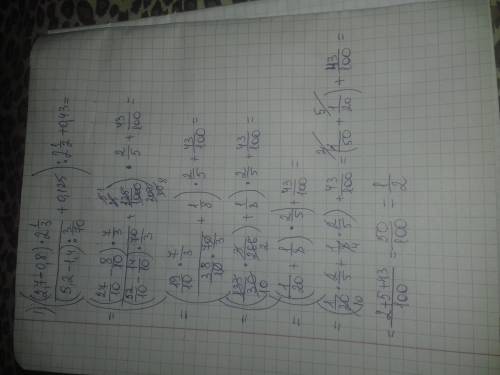 1) ((2,7-0,8)·2 1/3 / (5,2-1,4):3/70 + 0,125) : 2 1/2 + 0,43 =
= ((27/10 - 8/10)·7/3 / (52/10 - 14/10)·70/3 + 125/1000)·2/5 + 43/100 =
= (19/10·7/3 / 38/10·70/3 + 1/8)·2/5 + 43/100 =
= (133/30·3/266 + 1/8)·2/5 + 43/100 =
= (1/20 + 1/8)·2/5 + 43/100 =
= (1/20·2/5 + 1/8·2/5) + 43/100 = (1/50 + 1/20) + 43/100 =
= 2+5+43/100 = 50/100 = 1/2